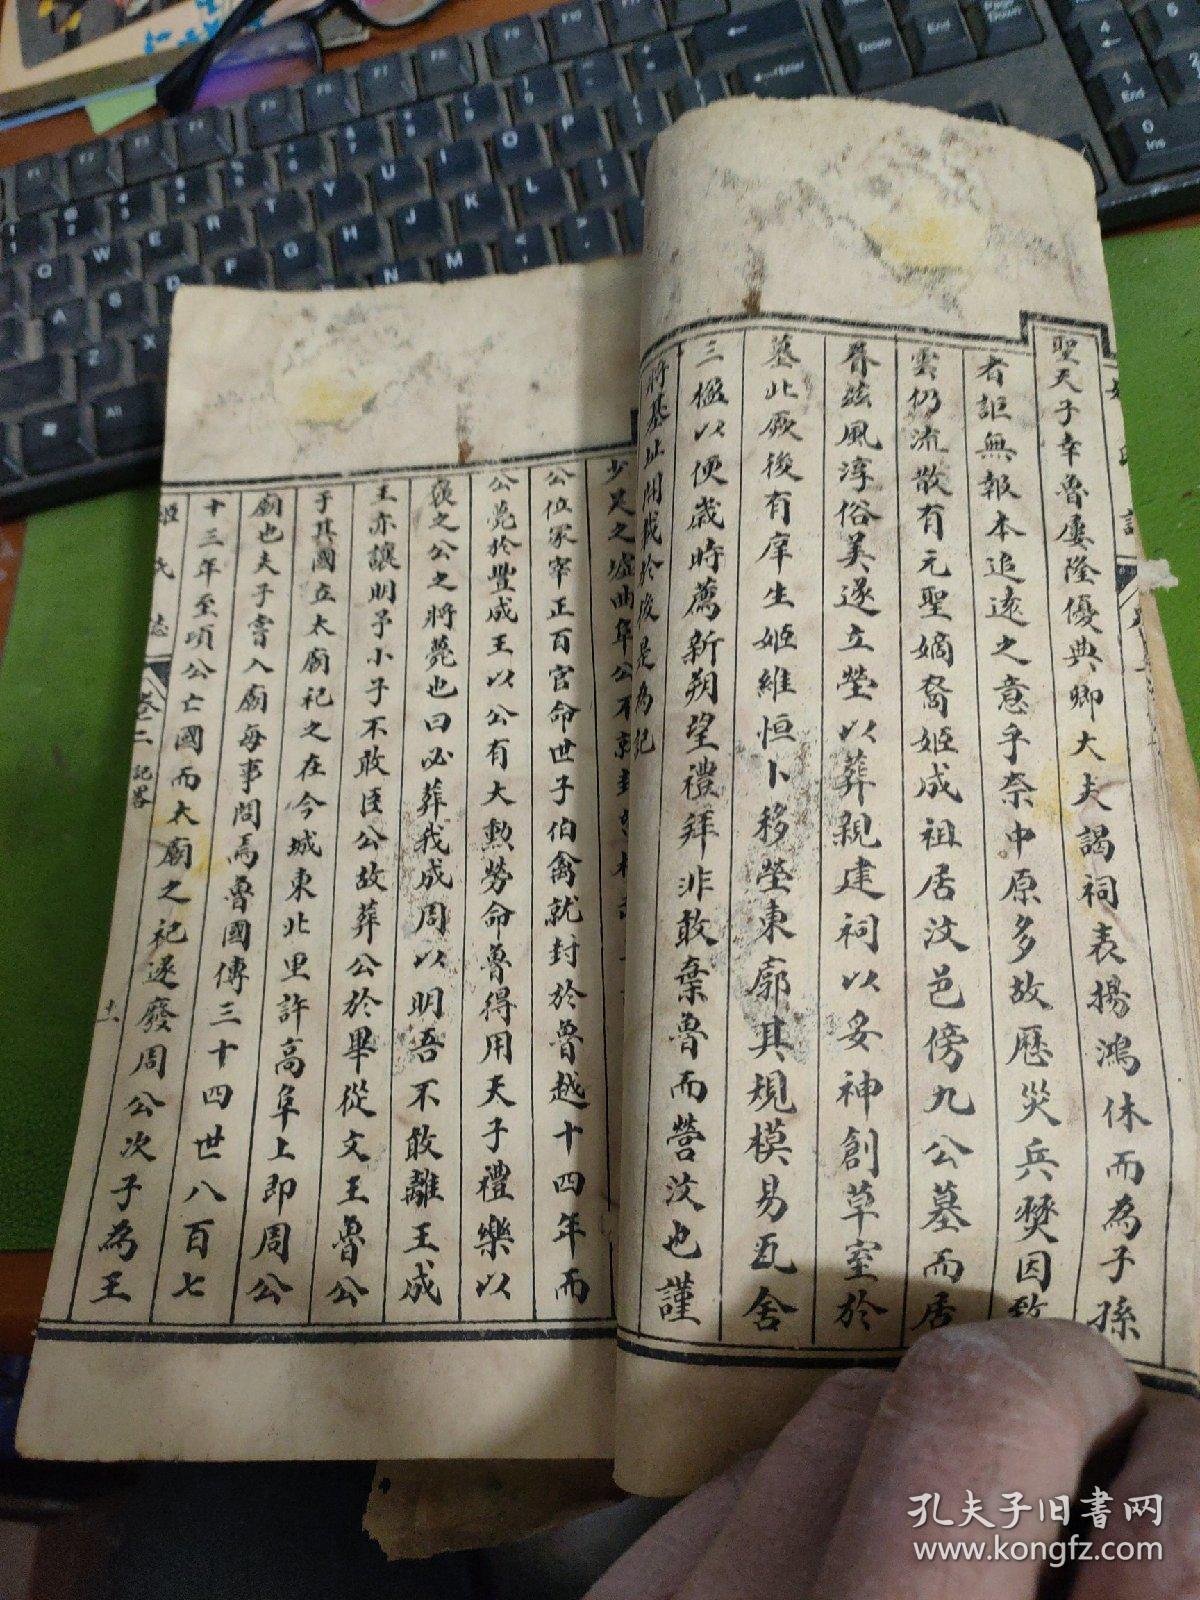 聖天子幸魯屢隆優典卿大夫謁祠表揚鴻休而為子孫
者詎無報本追遠之意乎奈中原多故歷災兵燹因致
雲仍流散有元聖嫡裔姬成祖居汶邑傍九公墓而居
眷茲風淳俗美遂立塋以葬親建祠以妥神創草室於
墓此厥後有庠生姬維恒卜移塋東廓其規模易瓦舍
三楹以便歲時薦新朔望禮拜非敢棄魯而營汶也謹
將基址開載於後是為紀
少昊之墟曲阜公不就封
公位冢宰正百官命世子伯禽就封於魯越十四年而
公薨於豐成王以公有大勳勞命魯得用天子禮樂以
褒之公之將薨也曰必葬我成周以明吾不敢離王成
王亦讓明予小子不敢臣公故葬公於畢從文王魯公
于其國立太廟祀之在今城東北里許高阜上即周公
廟也夫子嘗入廟每事問焉魯國傳三十四世八百七
十三年至頃公亡國而太廟之祀遂廢周公次子為王
姬氏志 卷二 記畧 十一
孔夫子旧书网
www.kongfz.com